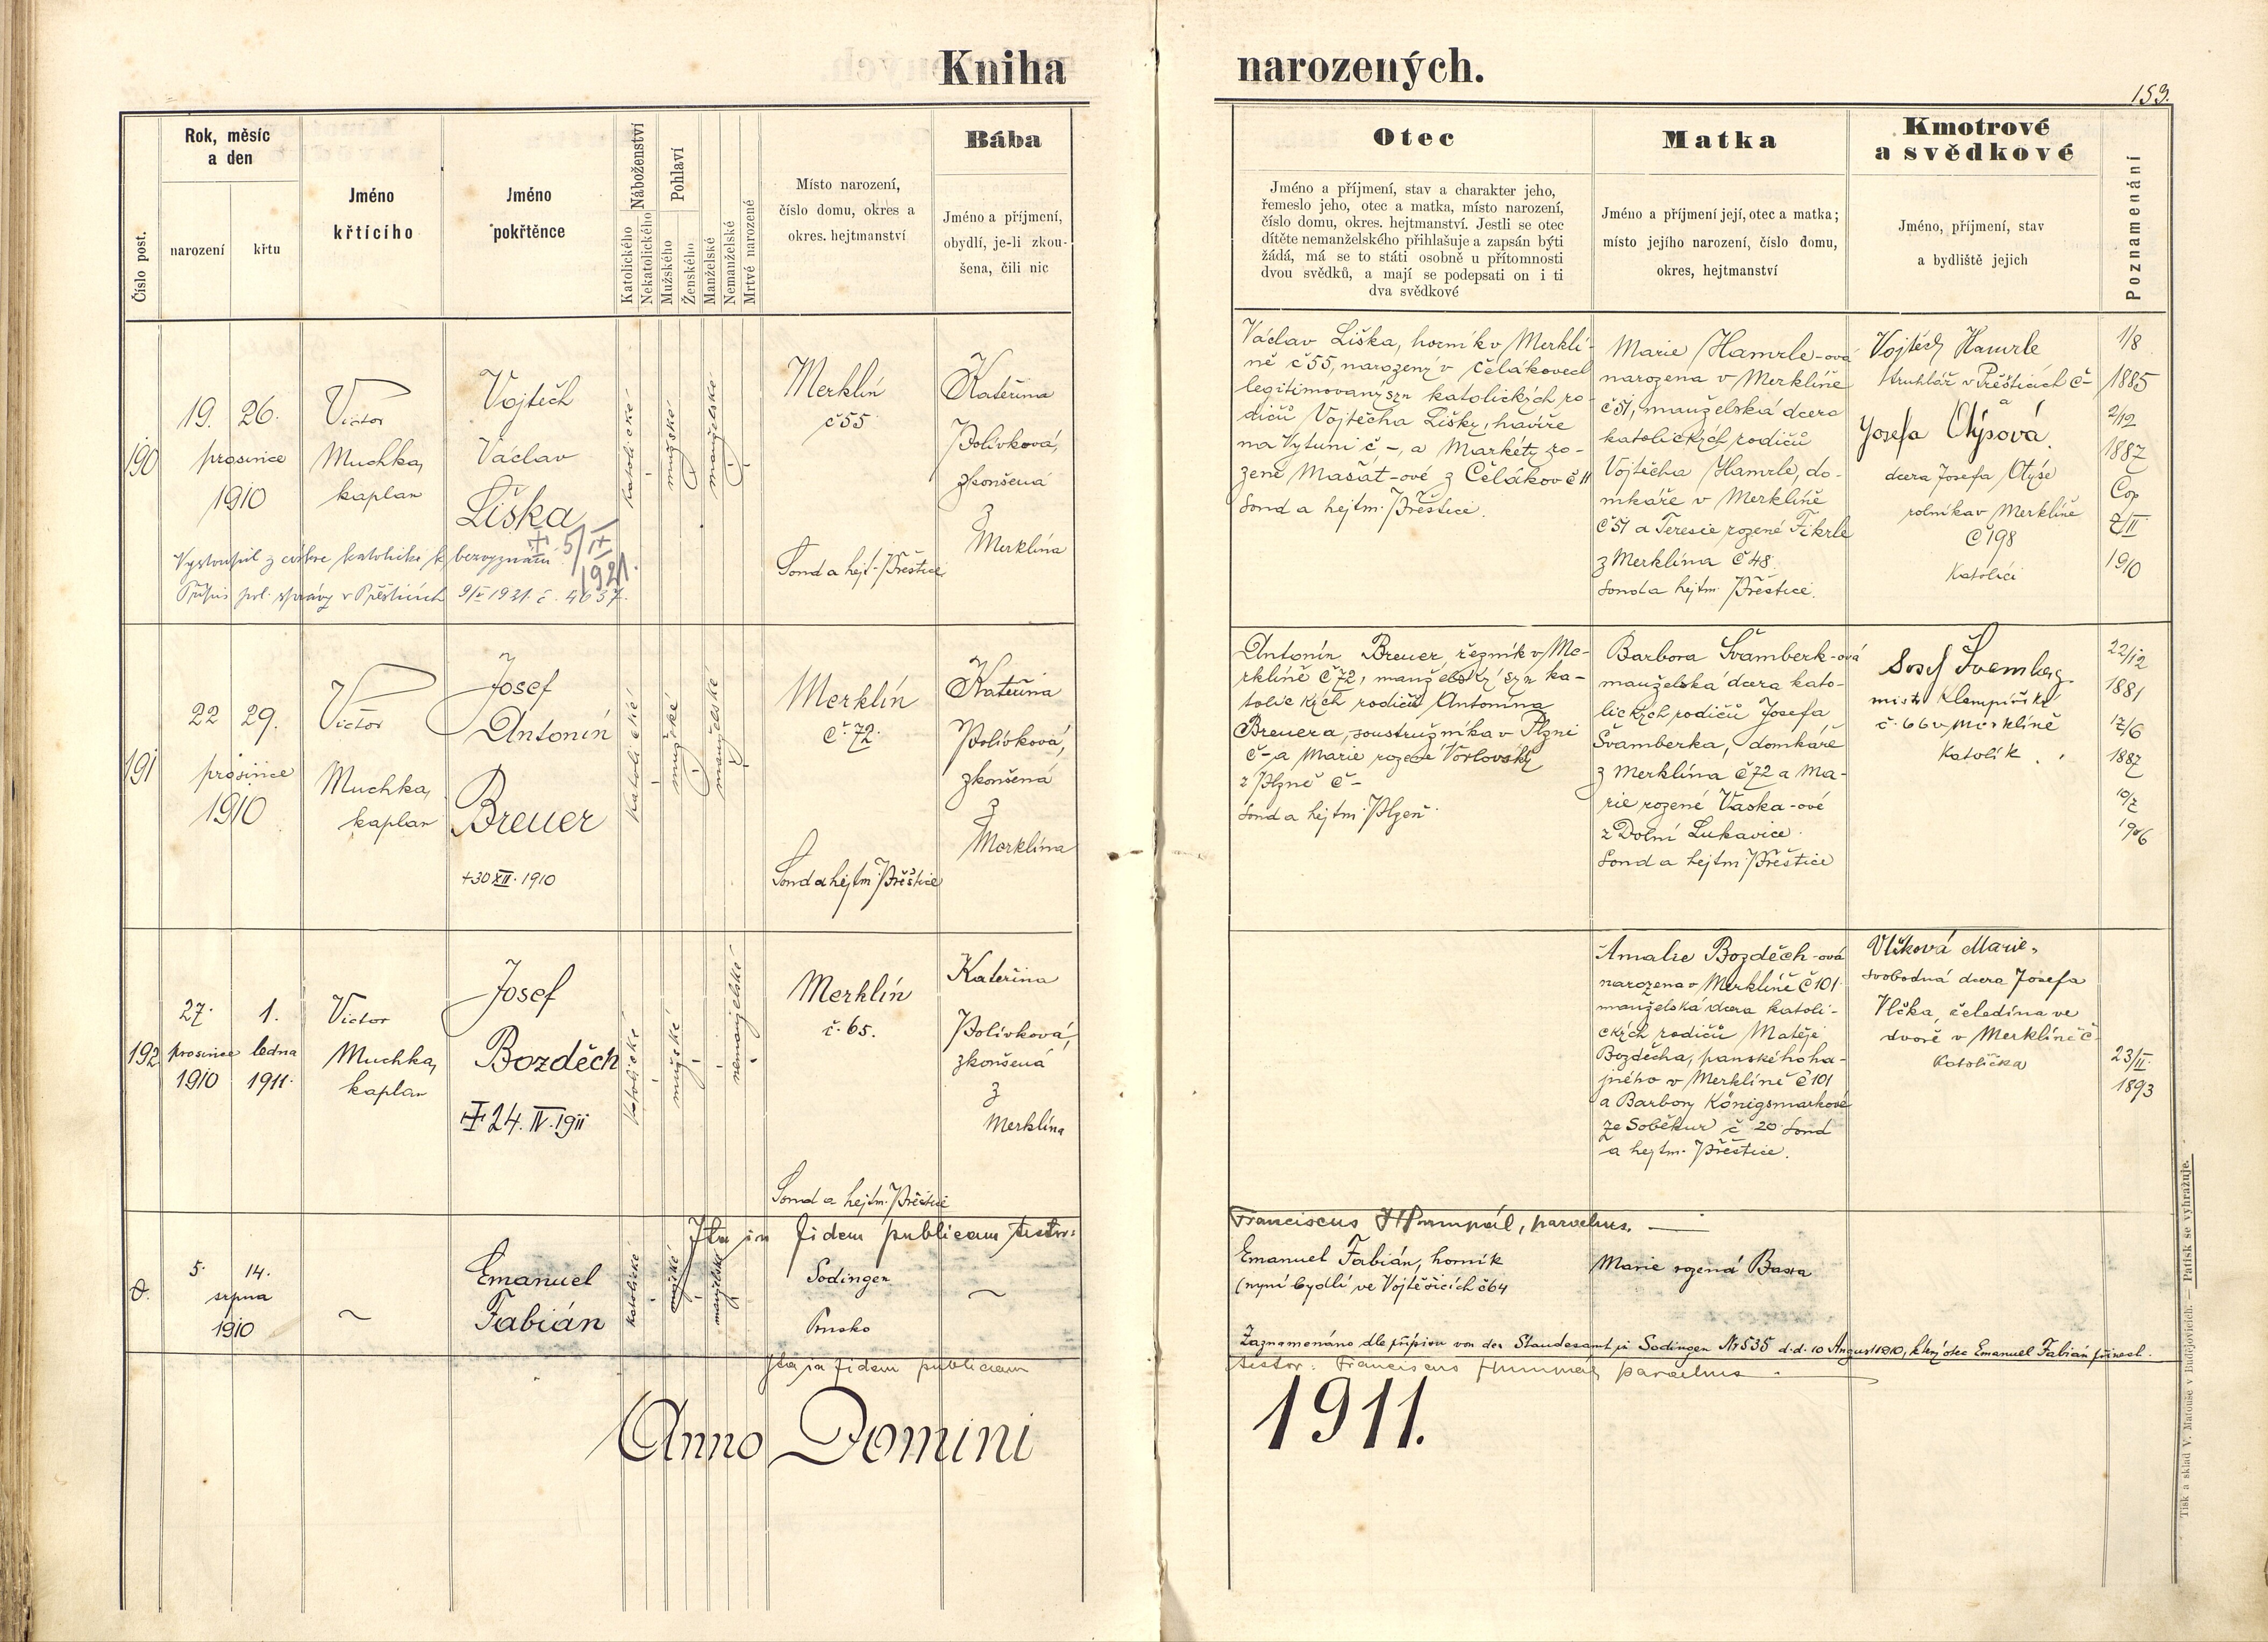 Kniha narozených.
153.
Číslo post.
Rok, měsíc
a den
narození
křtu
Jméno
křtícího
Jméno
pokřtěnce
Náboženství
Katolického
Nekatolického
Pohlaví
Mužského
Ženského
Manželské
Nemanželské
Mrtvé narozené
Místo narození,
číslo domu, okres a
okres. hejtmanství
Bába
Jméno a příjmení,
obydlí, je-li zkou-
šena, čili nic
Otec
Jméno a příjmení, stav a charakter jeho,
řemeslo jeho, otec a matka, místo narození,
číslo domu, okres. hejtmanství. Jestli se otec
dítěte nemanželského přihlašuje a zapsán býti
žádá, má se to státi osobně u přítomnosti
dvou svědků, a mají se podepsati on i ti
dva svědkové
Matka
Jméno a příjmení její, otec a matka;
místo jejího narození, číslo domu,
okres, hejtmanství
Kmotrové
a svědkové
Jméno, příjmení, stav
a bydliště jejich
Poznamenání
190
19. 26.
prosince
1910
Victor
Muchka,
kaplan
Vojtěch
Václav
Liška
katolické
mužské
manželské
Merklín
č 55
Soud a hejt. Přeštice
Kateřina
Polívková,
zkoušená
z
Merklína
Vystoupil z církve katolické k bezvyznání
5/IX
1921.
Přípis pol. správy v Přešticích 9/IX 1921. č. 4637.
Václav Liška, horník v Merklí-
ně č 55, narozený v Čelákovech
legitimovaný syn katolických ro-
dičů Vojtěcha Lišky, havíře
na Vytuni č -, a Markéty ro-
zené Mašát-ové z Čelákov č 11
soud a hejtm. Přeštice.
Marie Hamrle-ová
narozena v Merklíně
č 51, manželská dcera
katolických rodičů
Vojtěcha Hamrle, do-
mkáře v Merklíně
č 51 a Teresie rozené Fikrle
z Merklína č 48.
soud a hejtm. Přeštice.
Vojtěch Hamrle
truhlář v Přešticích č-
a
Josefa Otýsová.
dcera Josefa Otýse
rolníka v Merklíně
č 198
Katolíci
1/8
1885
2/12
1887
Cop
7/II
1910
191
22 29.
prosince
1910
Victor
Muchka,
kaplan
Josef
Antonín
Breuer
+30 XII. 1910
katolické
mužské
manželské
Merklín
č. 72.
Soud a hejtm. Přeštice
Kateřina
Polívková,
zkoušená
z
Merklína
Antonín Breuer, řezník v Me-
rklíně č 72, manželský syn ka-
tolických rodičů Antonína
Breuera, soustružníka v Plzni
č - a Marie rozené Vorlovský
z Plzně č -
soud a hejtm. Plzeň.
Barbora Švamberk-ová
manželská dcera kato-
lických rodičů Josefa
Švamberka, domkáře
z Merklína č 72 a Ma-
rie rozené Vaska-ové
z Dolní Lukavice.
soud a hejtm. Přeštice
Josef Švamberg.
mistr klempířský
č. 66 v Merklíně
Katolík.
22/12
1881
17/6
1887
10/7
1906
192
27. 1.
prosince ledna
1910 1911.
Victor
Muchka,
kaplan
Josef
Bozděch
+ 24. IV. 1911
katolické
mužské
nemanželské
Merklín
č. 65.
Soud a hejtm. Přeštice
Kateřina
Polívková,
zkoušená
z
Merklína
Amalie Bozděch-ová
narozena v Merklíně č 101
manželská dcera katoli-
ckých rodičů Matěje
Bozděcha, panského ha-
jného v Merklíně č 101
a Barbory Königsmarkové
ze Soběkur č 20 soud
a hejtm. Přeštice.
Vlčková Marie,
svobodná dcera Josefa
Vlčka, čeledína ve
dvoře v Merklíně č
Katolička
23/II.
1893
Ita in fidem publicam testor:
Franciscus Hummál, parochus.
5. 14.
srpna
1910
Emanuel
Fabián
katolické
mužské
manželské
Sodingen
Prusko
Emanuel Fabián, horník
(nyní bydlí ve Vojtěšicích č 64
Marie rozená Basta
Zaznamenáno dle přípisu von der Standesamt in Sodingen Nr 535 d.d. 10 August 1910, který otec Emanuel Fabián přinesl.
Ita in fidem publicam
testor: Franciscus Hummál parochus.
Anno Domini 1911.
Tisk a sklad V. Matouše v Budějovicích. — Patisk se vyhražuje.